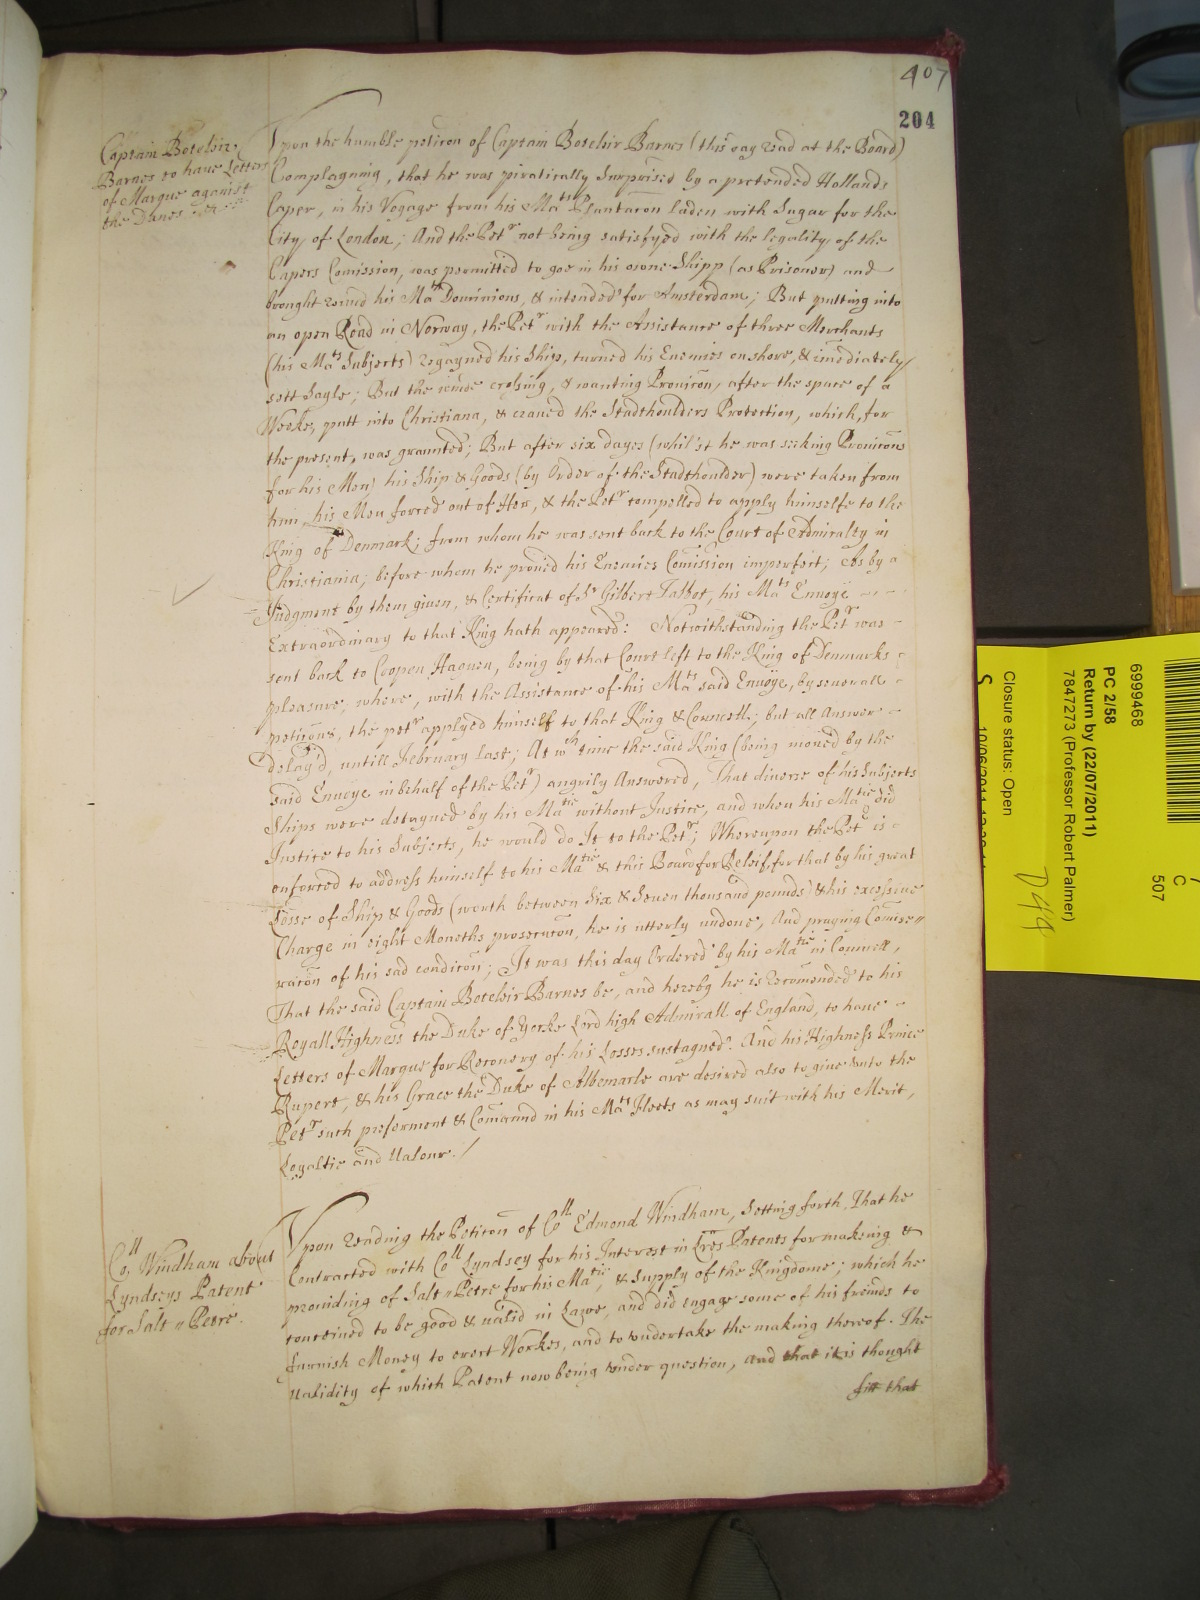 407
204
Captain Boteleir
Barnes to have Letters
of Marque against
the Danes
Upon the humble peticon of Captain Boteleir Barnes (this day read at the Board)
Complayning, that he was piratically Surprised by a pretended Hollands
Caper, in his Voyage from his Mats Plantacon laden with Sugar for the
City of London; And the Petr not being satisfyed with the legality of the
Capers Comission, was permitted to goe in his owne Shipp (as Prisoner) and
brought round his Mats Dominions, & intended for Amsterdam; But putting into
an open Road in Norway, the Petr with the Assistance of three Merchants
(his Mats Subjects) regayned his Ship, turned his Enemies on shore, & imediately
sett Sayle; But the winde crossing, & wanting Provicon, after the space of a
Weeke, putt into Christiana, & craved the Stadtholders Protection, which, for
the present, was graunted; But after six dayes (whil'st he was seeking Provicons
for his Men) his Ship & Goods (by Order of the Stadtholder) were taken from
him, his Men forced out of Her, & the Petr compelled to apply himselfe to the
King of Denmark; from whom he was sent back to the Court of Admiralty in
Christiania; before whom he proved his Enemies Comission imperfect; As by a
Judgment by them given, & Certificat of Sr Gilbert Talbot, his Mats Envoye
Extraordinary to that King hath appeared: Notwithstanding the Petr was
sent back to Coopen Haguen, being by that Court left to the King of Denmarks
pleasure; where, with the Assistance of his Mats said Envoye, by severall
peticons, the petr applyed himself to that King & Councell; but all Answer
delay'd, untill February last; At wch time the said King (being moved by the
said Envoye in behalf of the Petr) angrily Answered, That diverse of his Subjects
Ships were detayned by his Matie without Justice, and when his Matie did
Justice to his Subjects, he would do It to the Petr; Whereupon the Petr is
enforced to address himself to his Matie & this Board for Releif, for that by his great
Losse of Ship & Goods (worth between Six & Seven thousand pounds) & his excessive
Charge in eight Moneths prosecucon, he is utterly undone; And praying Comise„
racon of his sad condicon; It was this day Ordered by his Matie in Councell,
That the said Captain Boteleir Barnes be, and hereby he is recomended to his
Royall Highness the Duke of Yorke Lord high Admirall of England, to have
Letters of Marque for Recovery of his Losses sustayned. And his Highness Prince
Rupert, & his Grace the Duke of Albemarle are desired also to give unto the
Petr such preferment & Comannd in his Mats Fleets as may suit with his Merit,
Loyaltie and Valour. /
Coll Windham about
Lyndseys Patent
for Salt„Petre.
Vpon reading the Peticon of Coll Edmond Windham, Setting forth, That he
Contracted with Coll Lyndsey for his Interest in Lres Patents for making &
providing of Salt„Petre for his Matie, & Supply of the Kingdome; which he
conceived to be good & valid in Lawe, and did engage some of his freinds to
furnish Money to erect Workes, and to undertake the making thereof. The
validity of which Patent now being under question, and that it is thought
fitt that
6999468
PC 2/58
Return by (22/07/2011)
7847273 (Professor Robert Palmer)
Closure status: Open
C
507
D44